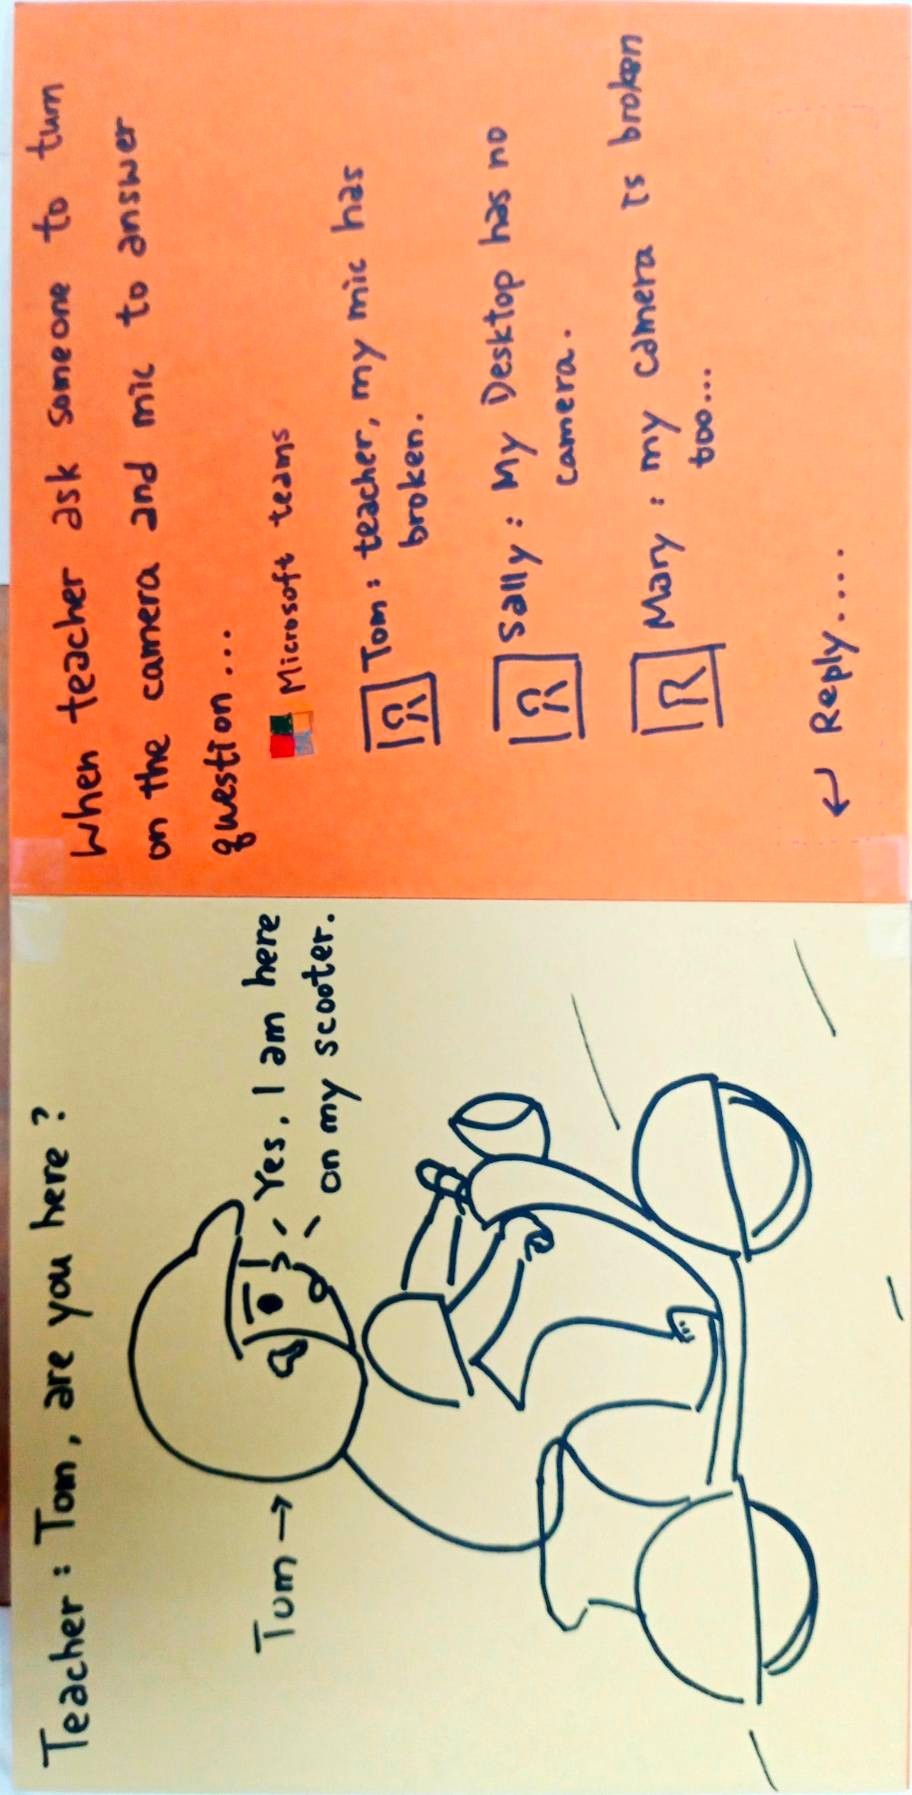 Teacher : Tom, are you here?
Tom →
Yes, I am here
on my scooter.
When teacher ask someone to turn
on the camera and mic to answer
question...
Microsoft teams
Tom : teacher, my mic has
broken.
Sally : My Desktop has no
camera.
Mary : my camera is broken
too...
↩ Reply.....